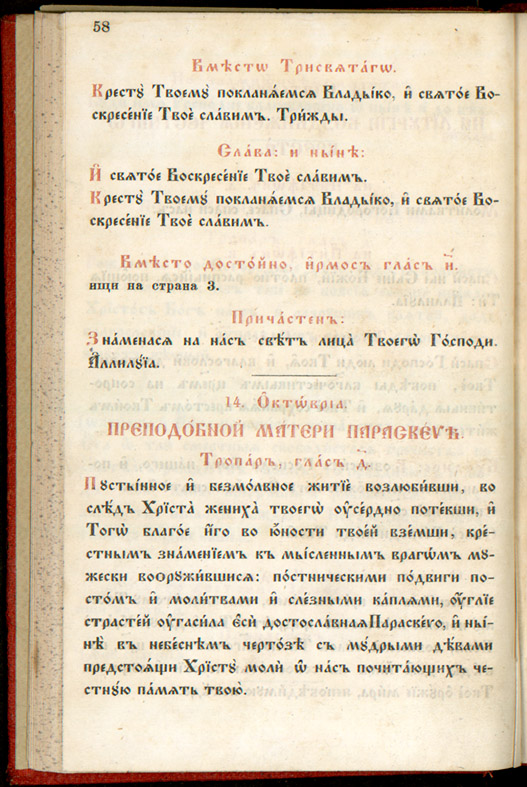 58
Вмѣстѡ Трисвѧта́гѡ.
Крестꙋ̀ Твоемꙋ̀ покланѧ́емсѧ Влады́ко, и҆ свѧто́е Во-
скресе́нїе Твоѐ сла́вимъ. Три́жды.
Сла́ва: и ны́нѣ:
И҆ свѧто́е Воскресе́нїе Твоѐ сла́вимъ.
Крестꙋ̀ Твоемꙋ́ покланѧ́емсѧ Влады́ко, и҆ свѧто́е Во-
скресе́нїе Твоѐ сла́вимъ.
Вмѣ́сто досто́йно, и҆рмосъ гла́съ и҃.
ищи на страна 3.
Прича́стенъ:
Зна́менасѧ на на́съ свѣ́тъ лица̀ Твоегѡ̀ Го́споди.
А҆ллилꙋ́їа.
14. Ѻ҆ктѡ́врїа.
ПРЕПОДО́БНОЙ МА́ТЕРИ ПАРАСКЕ́ѴѢ.
Тропа́ръ, гла́съ д҃.
Пꙋсты́нное и҆ безмо́лвное житїѐ возлюби́вши, во
слѣ́дъ Хрїста̀ жениха̀ твоегѡ̀ ᲂу҆се́рдно поте́кши, и҆
Тогѡ̀ благо́е и҆́го во ю҆́ности твое́й взе́мши, кре́-
стнымъ зна́менїемъ къ мы́сленнымъ врагѡ́мъ мꙋ́-
жески воѻрꙋжи́вшисѧ: по́стническими по́двиги по-
сто́мъ и҆ моли́твами и҆ сле́зными ка́плѧми, ᲂу҆́глїе
страсте́й ᲂу҆гаси́ла є҆сѝ достосла́внаѧ Параске́ѵо, и҆ ны́-
нѣ въ небе́снѣмъ черто́зѣ съ мꙋ́дрыми дѣ́вами
предстоѧ́щи Хрїстꙋ̀ молѝ ѡ҆ на́съ почита́ющихъ че-
стнꙋ́ю па́мѧть твою̀.